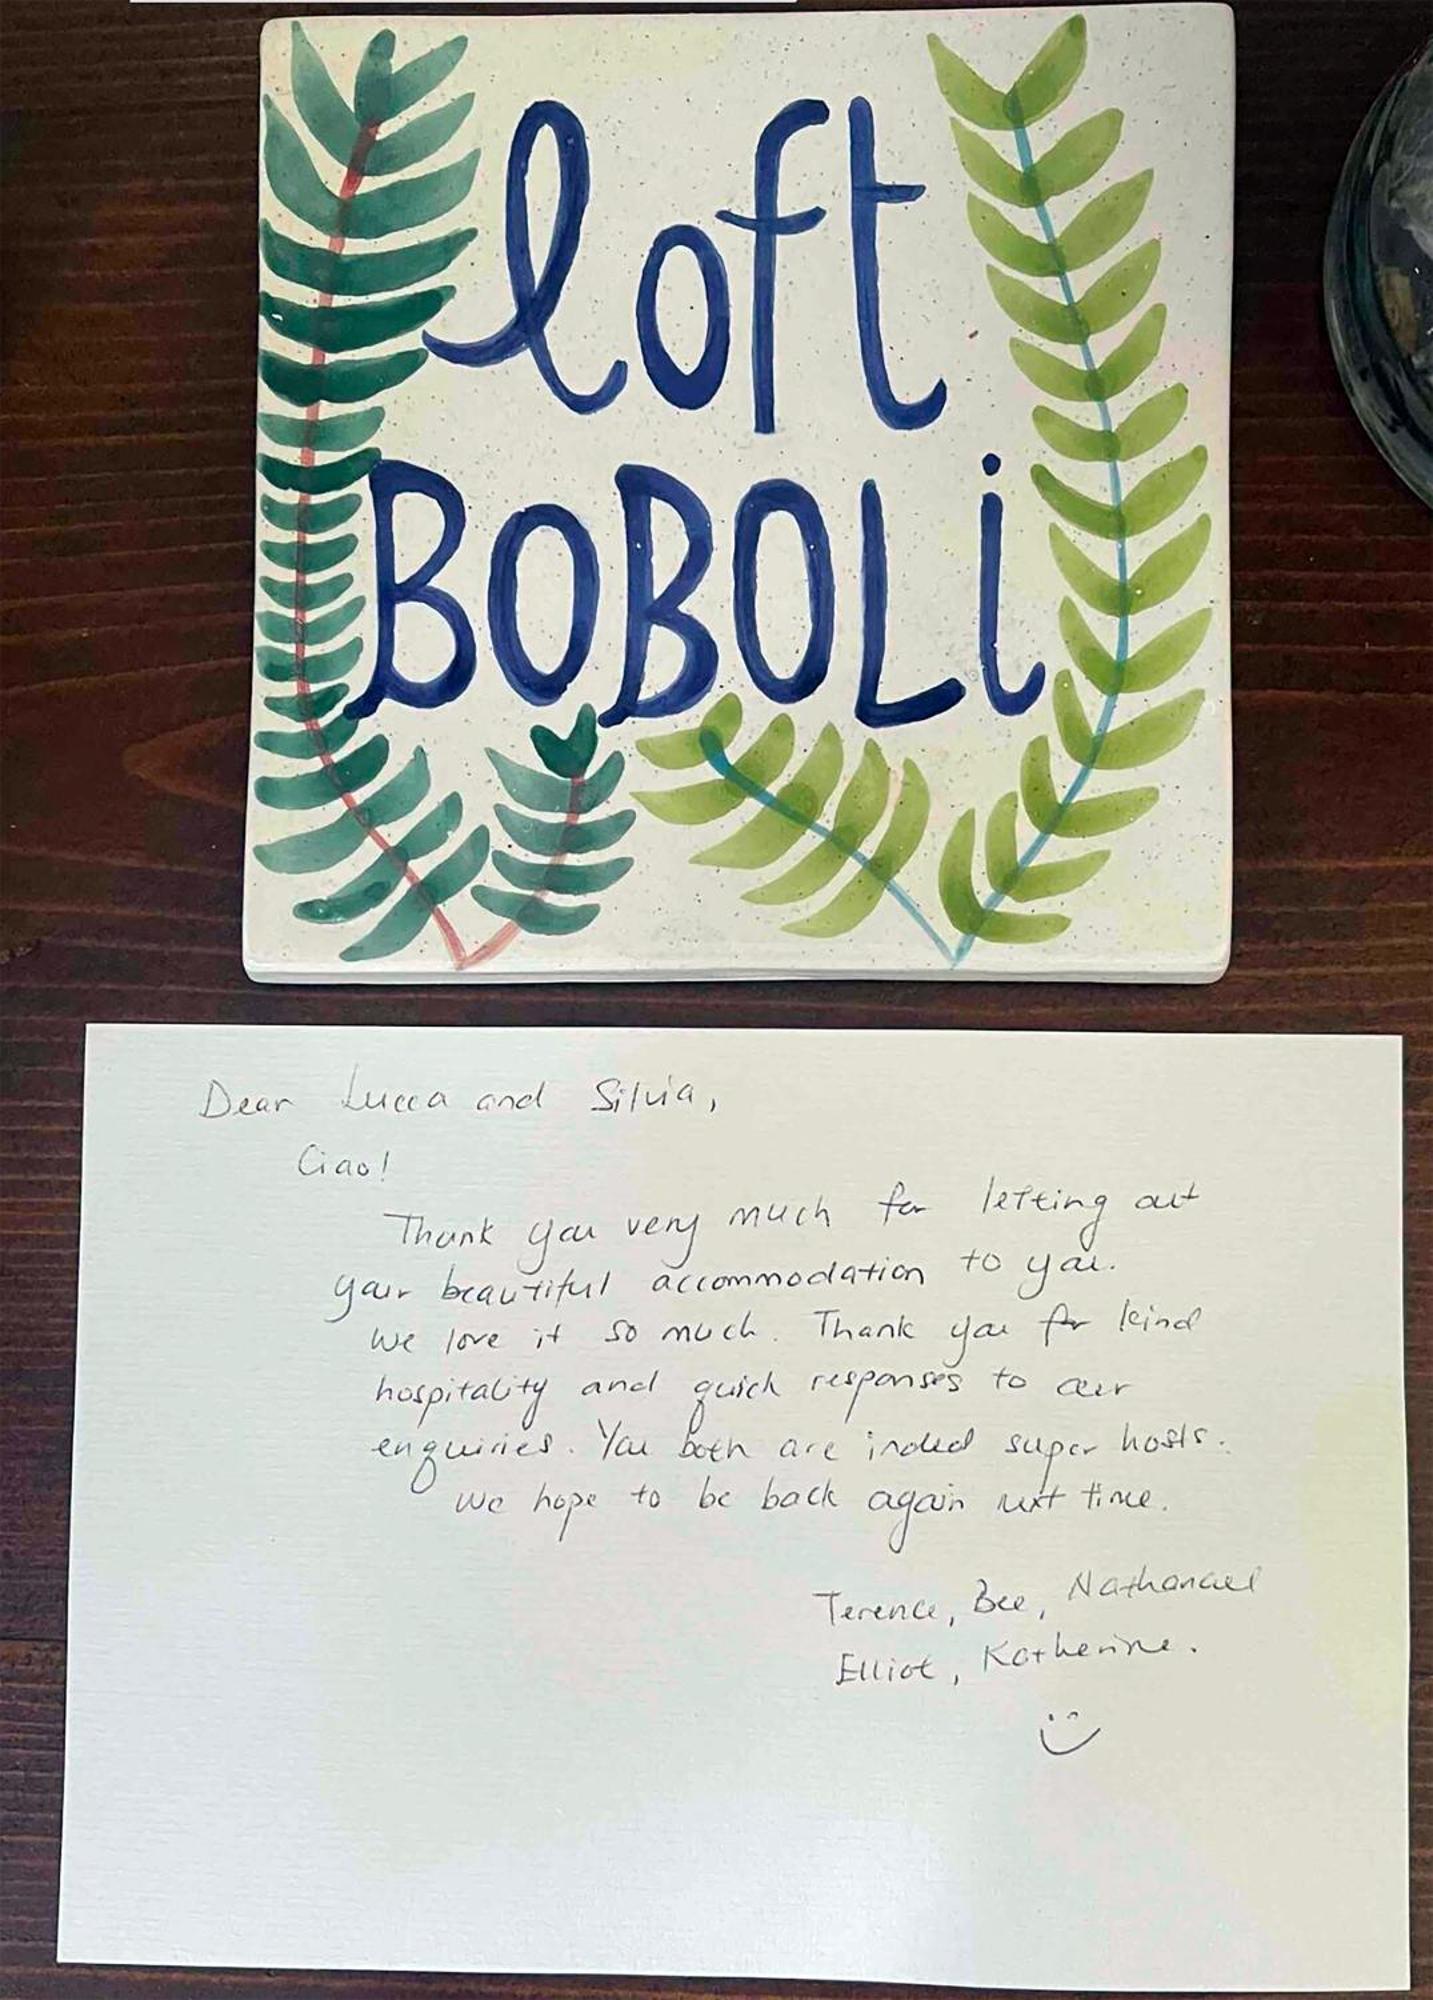 loft
BOBOLi
Dear Lucca and Silvia,
Ciao!
Thank you very much for letting out
your beautiful accommodation to you.
We love it so much. Thank you for kind
hospitality and quick responses to our
enquiries. You both are indeed super hosts.
We hope to be back again next time.
Terence, Bee, Nathanael
Elliot, Katherine.